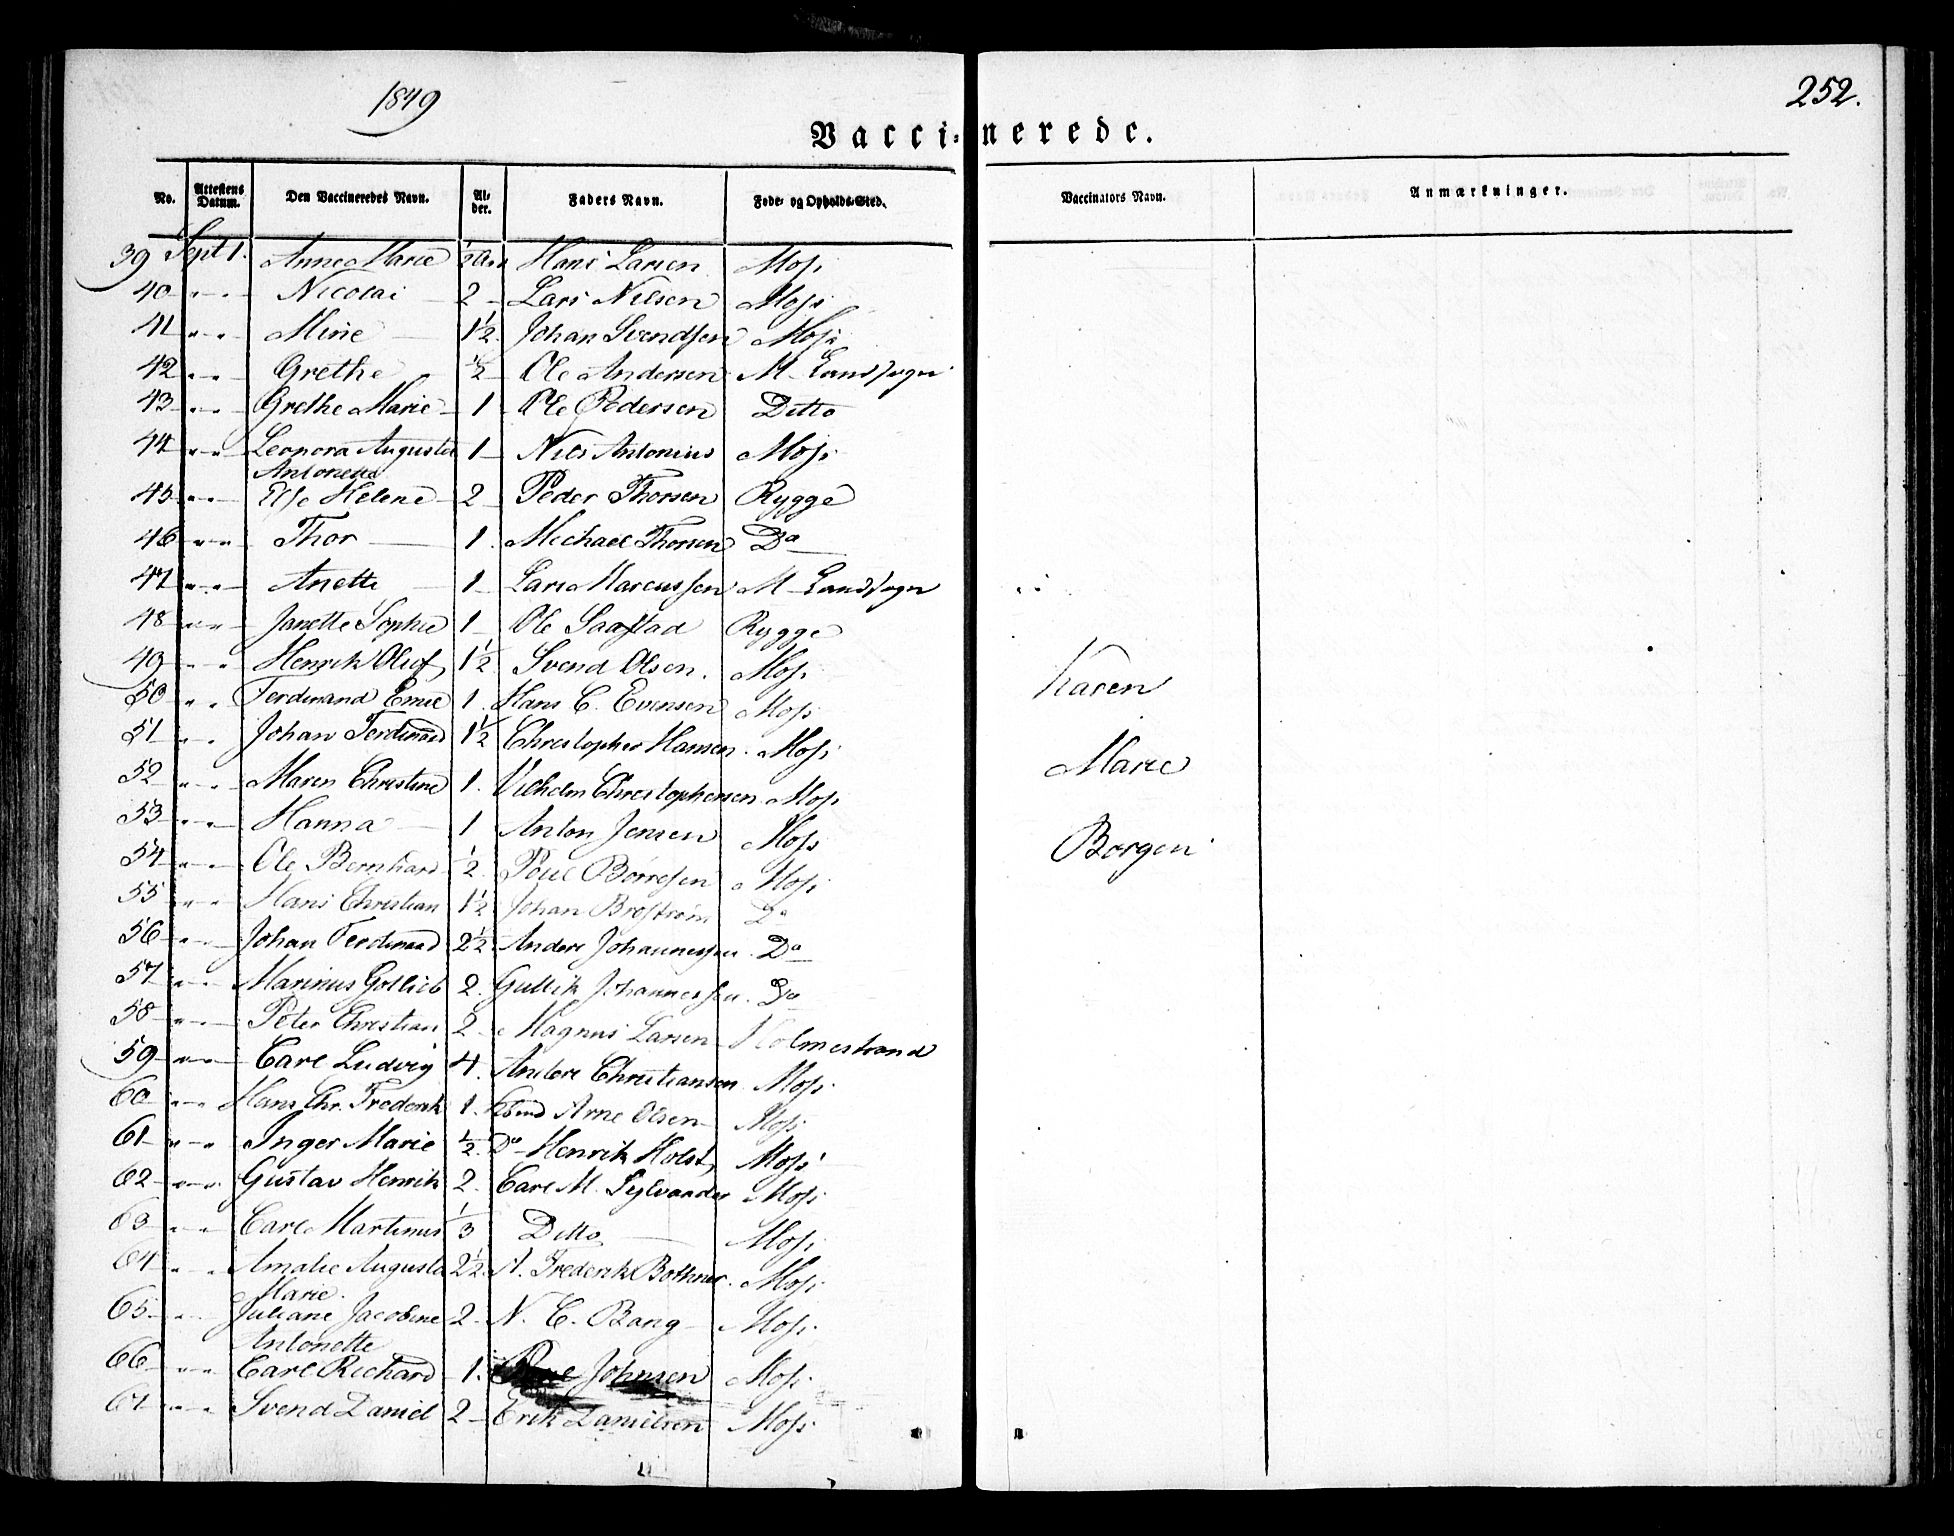 1849
252.
Vacci-nerede.
No. Attestens Datum. Den Vaccineredes Navn. Al-der. Faders Navn. Føde- og Opholds-Sted. Vaccinators Navn. Anmærkninger.
39 Sept 1. Anne Marie 1/2 Hans Larsen Moss
40 " " Nicolai 2 Lars Nilsen Moss
41 " " Mine 1 1/2 Johan Svendsen Moss
42 " " Grethe 1/2 Ole Andersen M. Landsogn
43 " " Grethe Marie 1 Ole Pedersen Ditto
44 " " Leonora Augusta 1 Nils Antonius Moss
Antonette
45 " " Else Helene 2 Peder Thorsen Rygge
46 " " Thor 1. Michael Thorsen Do
47 " " Anette 1 Lars Marcussen M. Landsogn
48 " " Janette Sophie 1 Ole Saastad Rygge
49 " " Henrik Oluf 1 1/2 Svend Olsen. Moss
50 " " Ferdinand Emil 1. Hans C. Evensen Moss Karen
51 " " Johan Ferdinand 1 1/2 Christopher Hansen. Moss
52 " " Maren Christine 1. Vilhelm Christophersen Moss Marie
53 " " Hanna 1 Anton Jensen Moss
54 " " Ole Bernhard 1/2 Poul Børresen Moss Borgen
55 " " Hans Christian 1 1/2 Johan Brostrøm Do
56 " " Johan Ferdinand 2 1/2 Anders Johannessen. Do
57 " " Marinus Gotlieb 2. Gullik Johannessen. Do
58 " " Peter Christian 2 Magnus Larsen Holmestrand
59 " " Carl Ludvig 4. Anders Christiansen Moss
60 " " Hans Chr. Frederik 1. Arne Olsen Moss
61 " " Inger Marie 1/2. Do Henrik Holst Moss
62 " " Gustav Henrik 2. Carl M. Sylvander Moss
63 " " Carl Martinus 1/3 Ditto Moss
64 " " Amalie Augusta 2 1/2. A. Frederik Bothner. Moss
Marie.
65 " " Juliane Jacobine 2 N. C. Bang Moss
Antonette
66 " " Carl Richard 1. Johnsen Moss
67 " " Svend Daniel 2 Erik Danielsen Moss